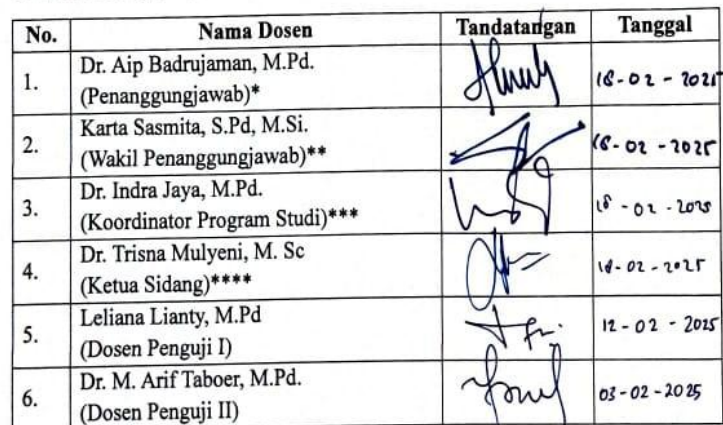 No. Nama Dosen Tandatangan Tanggal
1. Dr. Aip Badrujaman, M.Pd.
(Penanggungjawab)* 18-02-2025
2. Karta Sasmita, S.Pd, M.Si.
(Wakil Penanggungjawab)** 18-02-2025
3. Dr. Indra Jaya, M.Pd.
(Koordinator Program Studi)*** 18-02-2025
4. Dr. Trisna Mulyeni, M. Sc
(Ketua Sidang)**** 18-02-2025
5. Leliana Lianty, M.Pd
(Dosen Penguji I) 12-02-2025
6. Dr. M. Arif Taboer, M.Pd.
(Dosen Penguji II) 03-02-2025